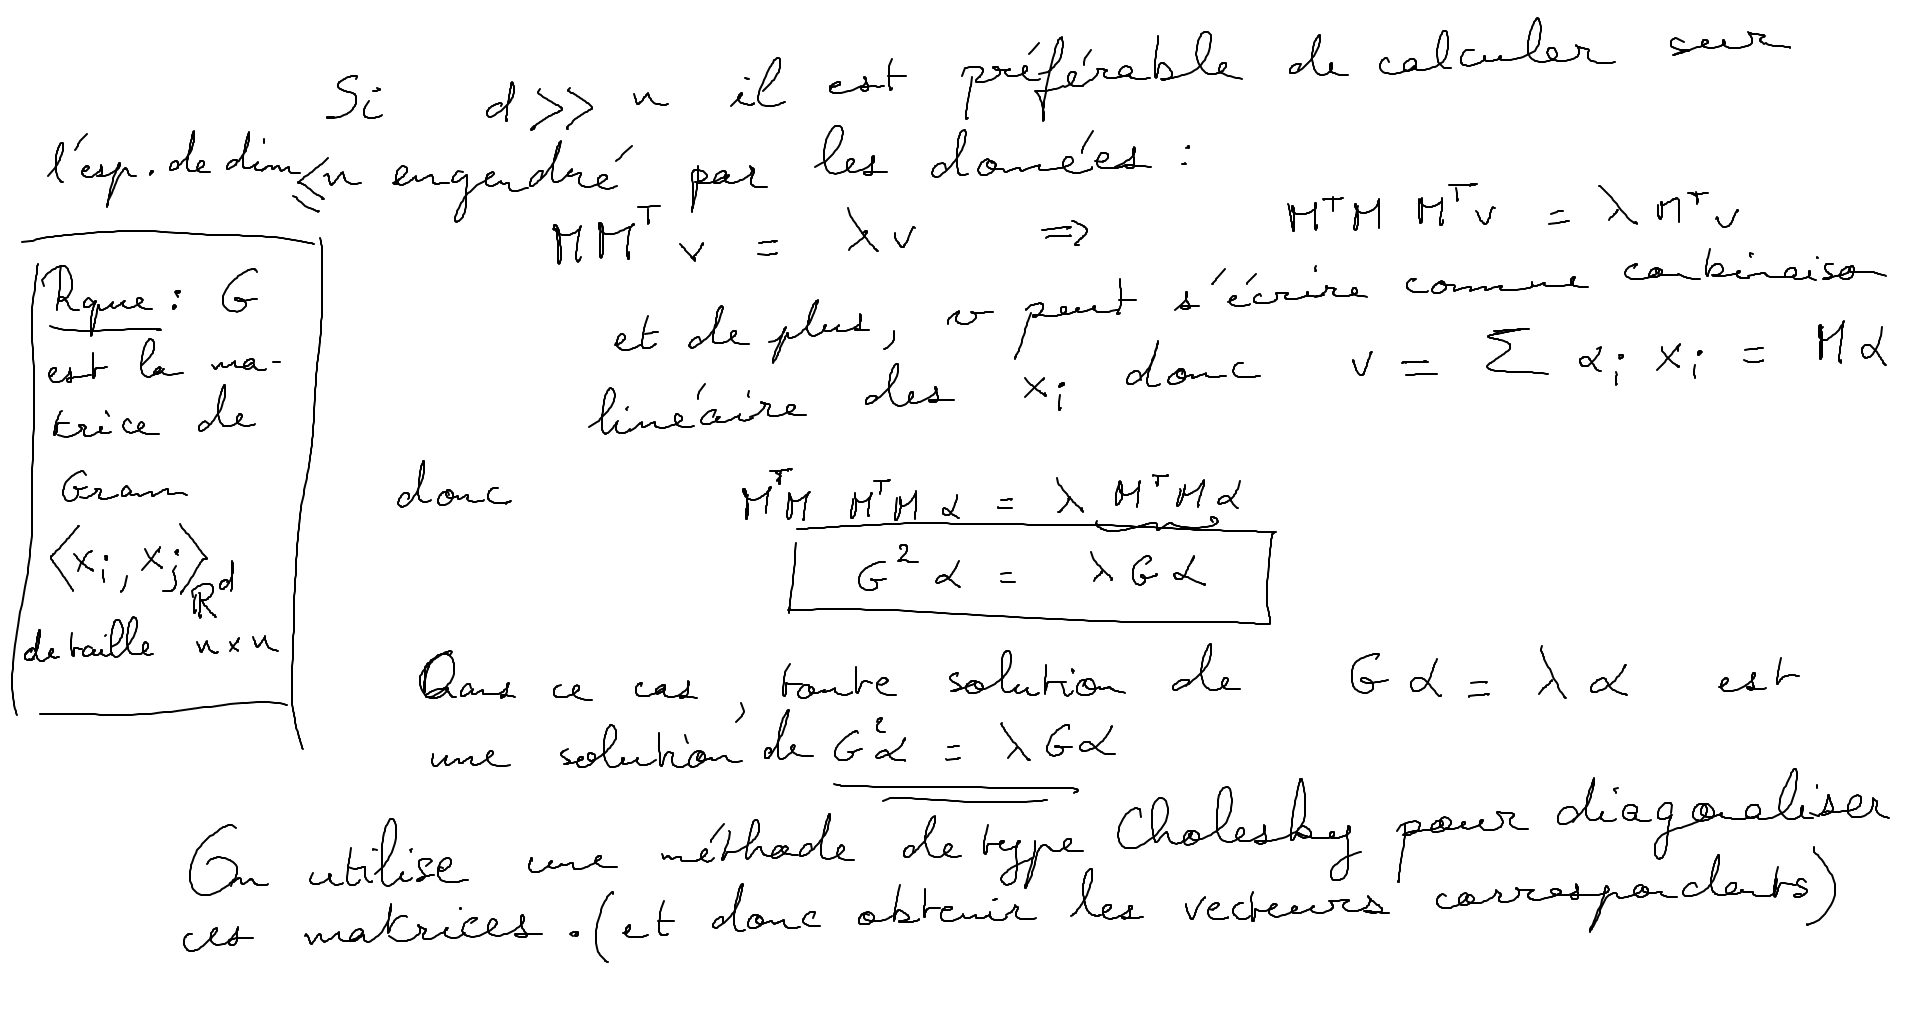 Si d >> n il est préférable de calculer sur
l'esp. de dim ≤ n engendré par les données :
MMᵀ v = λ v ⇒ MᵀM Mᵀv = λ Mᵀv
et de plus, v peut s'écrire comme combinaiso
linéaire des xᵢ donc v = Σ αᵢ xᵢ = Mα
donc MᵀM MᵀM α = λ MᵀMα
G² α = λ G α
Rque : G
est la ma-
trice de
Gram
⟨xᵢ, xⱼ⟩ℝᵈ
de taille n×n
Dans ce cas, toute solution de G α = λ α est
une solution de G²α = λ Gα
On utilise une méthode de type Cholesky pour diagonaliser
ces matrices. (et donc obtenir les vecteurs correspondants)